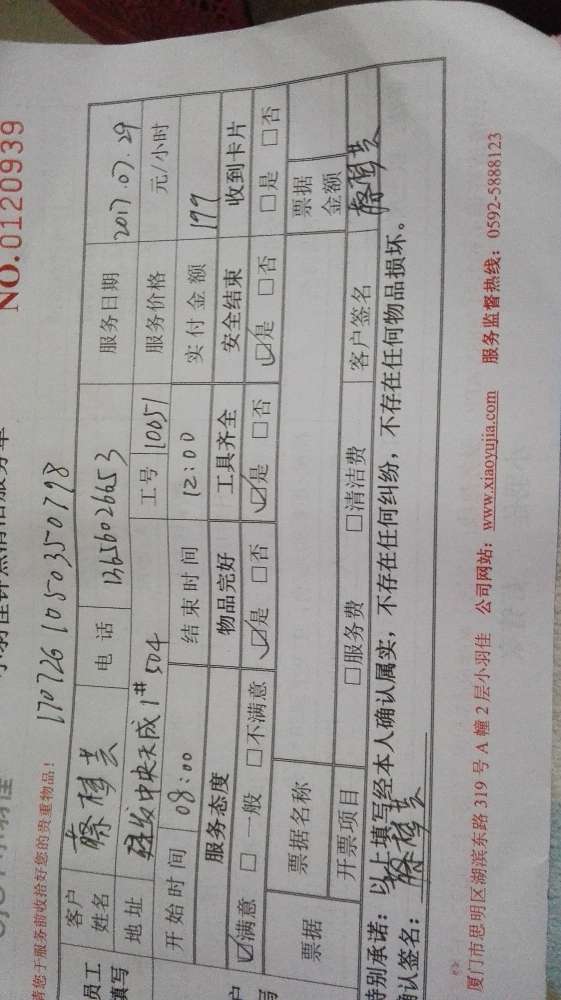 NO.0120939
请您于服务前收拾好您的贵重物品!
1707261050350798
员工填写
客户姓名 电话 13656026653 服务日期 2017.07.29
地址 中央天成1# 504 工号 10051 服务价格 元/小时
开始时间 08:00 结束时间 12:00 实付金额 199
服务态度 物品完好 工具齐全 安全结束 收到卡片
☑满意 □一般 □不满意 ☑是 □否 ☑是 □否 ☑是 □否 □是 □否
票据 票据名称 票据金额
开票项目 □服务费 □清洁费 客户签名
特别承诺:以上填写经本人确认属实,不存在任何纠纷,不存在任何物品损坏。
确认签名:
厦门市思明区湖滨东路 319 号 A 幢 2 层小羽佳 公司网站:www.xiaoyujia.com 服务监督热线:0592-5888123